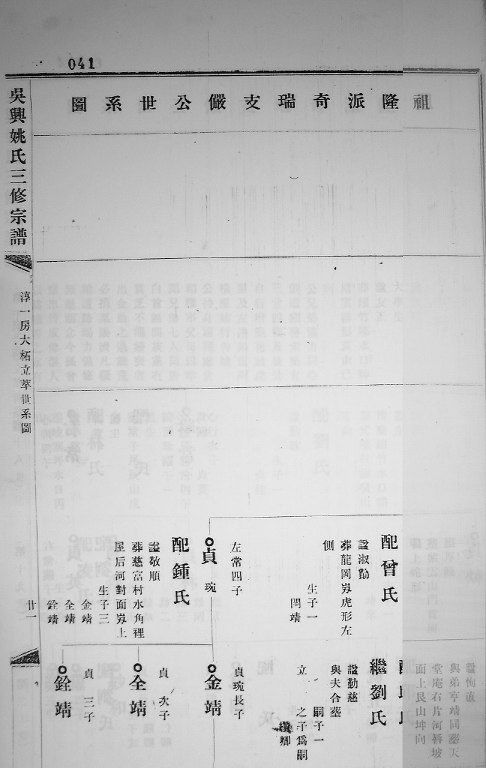 041
祖隆派奇瑞支儼公世系圖
吳興姚氏三修宗譜
淳一房大柘立萃世系圖
廿一
配曾氏
諡淑勤
葬龍岡嵏虎形左
側
生子一
閏靖
左常四子
貞瑰
配鍾氏
諡敬順
葬慈富村水角裡
屋后河對面嵏上
生子三
金靖
全靖
銓靖
諡恂直
與弟亨靖同塋天
堂庵右片河唇坡
面上艮山坤向
繼劉氏
諡勤慈
與夫合塟
嗣子一
之子爲嗣
立
貞瑰長子
金靖
貞 次子
全靖
貞 三子
銓靖